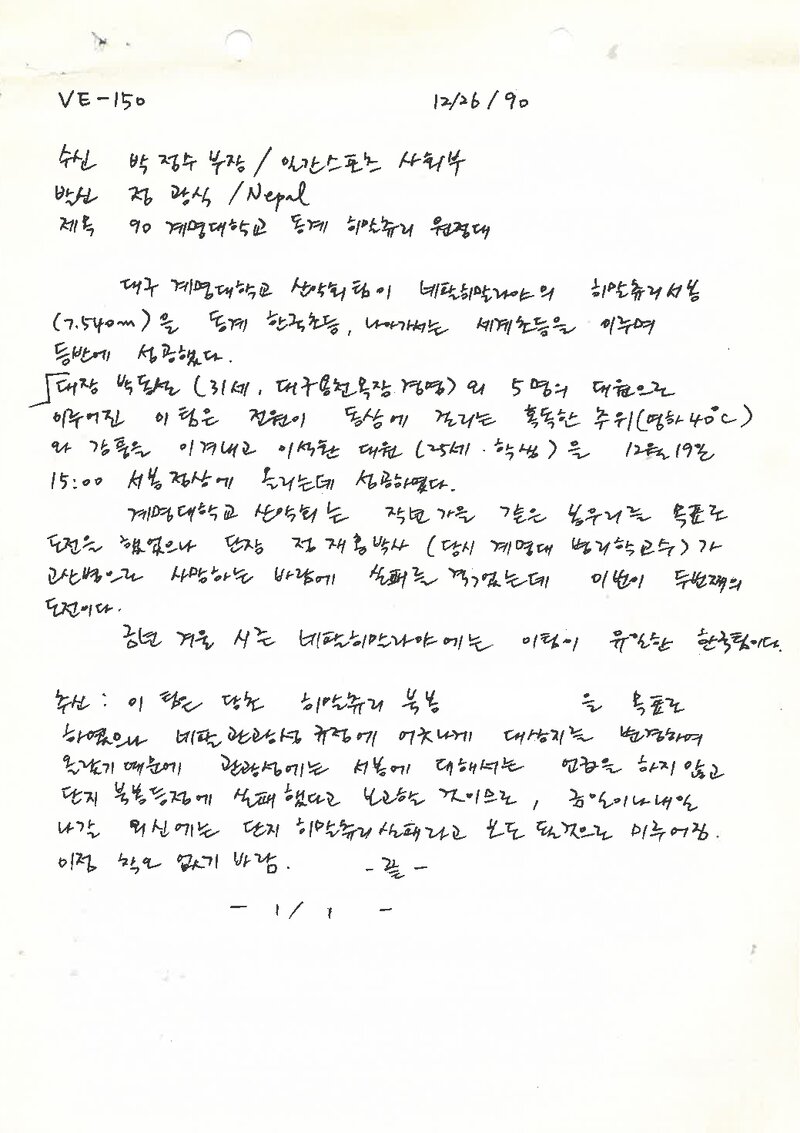 VE-150 12/26/90
수신 박정수 부장 / 일간스포츠 사회부
발신 정광식 / Nepal
제목 90 계명대학교 동계 히말츄리 원정대
대구 계명대학교 산악회팀이 네팔히말라야의 히말츄리서봉
(7.540m)을 동계 한국초등, 나아가서는 세계초등을 이루며
등반에 성공했다.
대장 박동실 (31세, 대구 경영)와 5명의 대원으로
이루어진 이 팀은 전원이 동상에 걸리는 혹독한 추위(영하 40°C)
와 강풍을 이겨내고 대원 (25세·학생)을 12월 19일
15:00 서봉정상에 올리는데 성공하였다.
계명대학교 산악회는 작년 가을 같은 봉우리를 목표로
도전을 했었으나 단장 정재홍박사 (당시 계명대 교수)가
고산병으로 사망하는 바람에 실패를 겪었는데 이번이 두번째의
도전이다.
금년 겨울 시즌 네팔히말라야에는 이팀이 유일한 한국팀이다.
추신 : 이 팀은 당초 히말츄리 북봉 을 목표로
하였으나 네팔 관광성 규정에 어긋나게 대상지를 변경하여
올랐기 때문에 관광성에는 서봉에 대해서는 언급을 하지 않고
단지 북봉등정에 실패했다고 보고할 것이므로, 금일이나 내일
나갈 외신에는 단지 히말츄리 실패라고 보도 될것으로 미루어짐.
이점 착오 없기 바람. -끝-
- 1 / 1 -